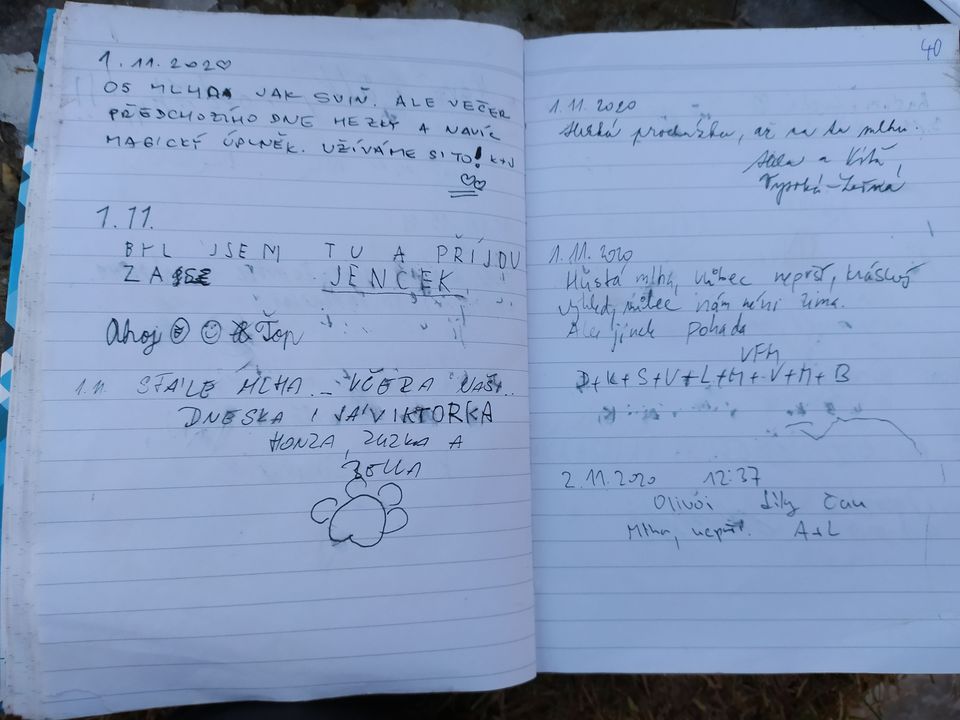 1.11.2020
OS MLHA JAK SVIŇ. ALE VEČER
PŘEDCHOZÍHO DNE HEZKÝ A NAVÍC
MAGICKÝ ÚPLNĚK. UŽÍVÁME SI TO! K+J
1.11.
BYL JSEM TU A PŘÍJDU
ZASE JENČEK
Ahoj Top
1.11. STÁLE MLHA... VČERA
DNESKA I JÁ VIKTORKA
HONZA, ZUZKA A
BELLA
40
1.11.2020
Hezká procházka, až na tu mlhu.
a Víťa,
Vysoká-Letná
1.11.2020
Hustá mlha, vůbec neprší, krásný
výhled, vůbec nám není zima.
Ale jinak pohoda
VFM
D+K+S+V+L+M+V+M+B
2.11.2020 12:37
Lily čau
Mlha, neprší. A+L